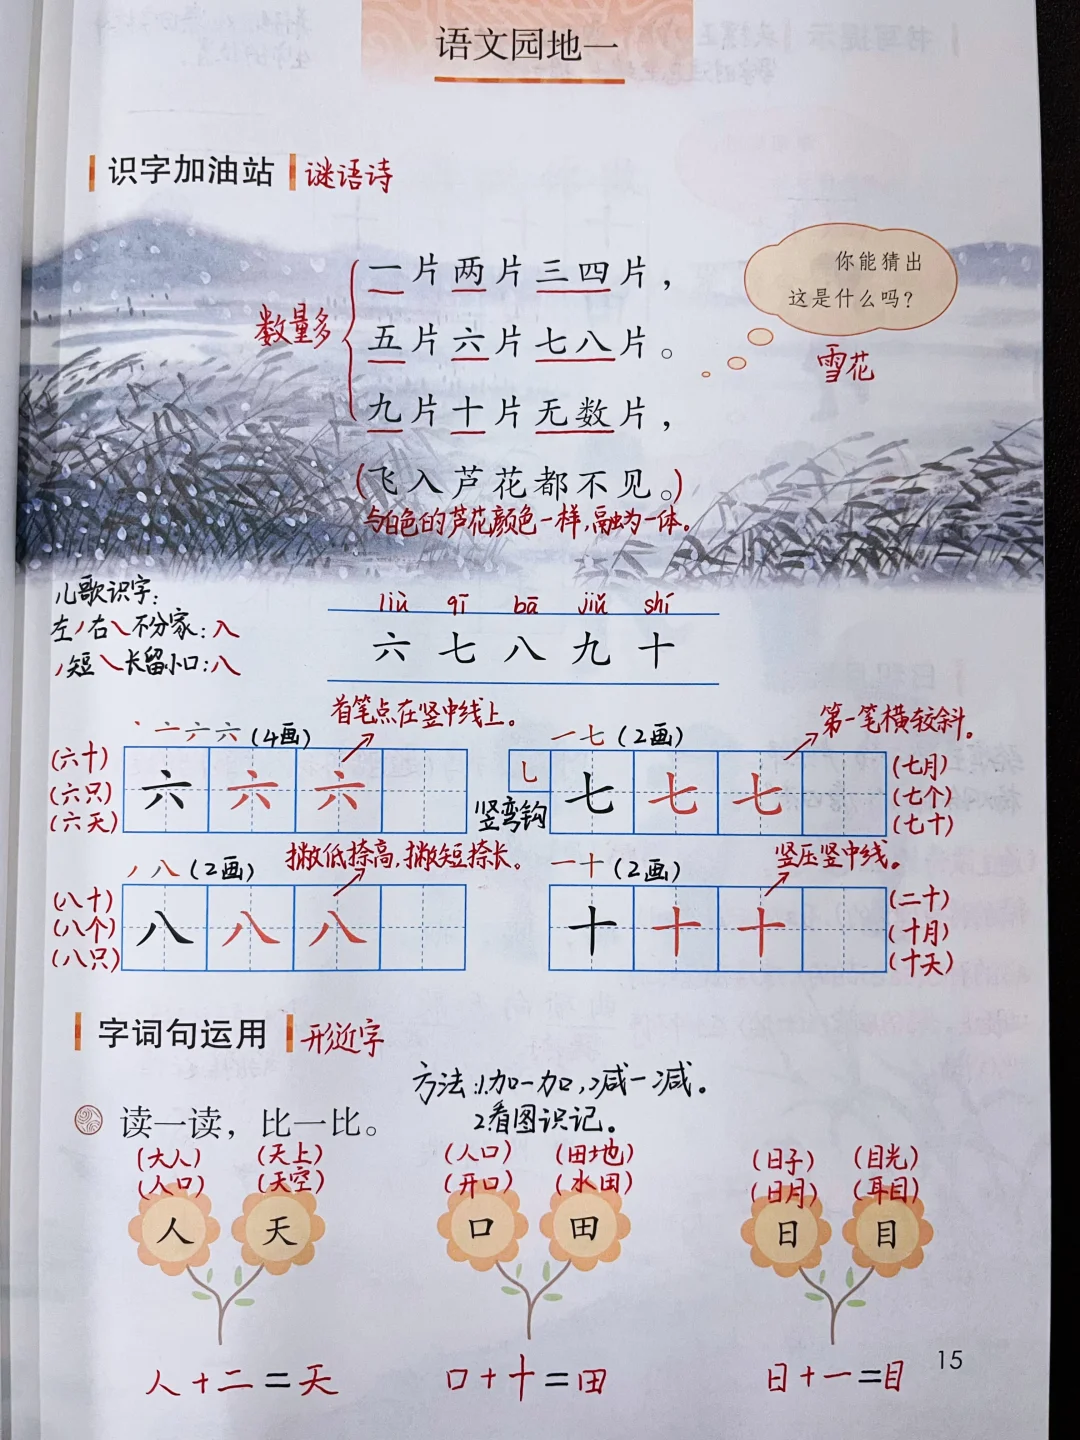 语文园地一
识字加油站 谜语诗
一片两片三四片，
你能猜出
这是什么吗？
数量多
五片六片七八片。
雪花
九片十片无数片，
(飞入芦花都不见。)
与白色的芦花颜色一样,融为一体。
儿歌识字:
左丿右㇏不分家:入
丿短㇏长留小口:八
liù qī bā jiǔ shí
六 七 八 九 十
首笔点在竖中线上。
第一笔横较斜。
丶 亠 六 六 (4画)
一 七 (2画)
(六十)
(六只)
(六天)
六 六 六
乚
竖弯钩
七 七 七
(七月)
(七个)
(七十)
丿 八 (2画)
撇低捺高,撇短捺长。
一 十 (2画)
竖压竖中线。
(八十)
(八个)
(八只)
八 八 八
十 十 十
(二十)
(十月)
(十天)
字词句运用 形近字
方法:1.加一加,减一减。
2看图识记。
读一读，比一比。
(大人) (天上) (人口) (田地) (日子) (目光)
(人口) (天空) (开口) (水田) (日月) (耳目)
人 天 口 田 日 目
人+二=天 口+十=田 日+一=目
15